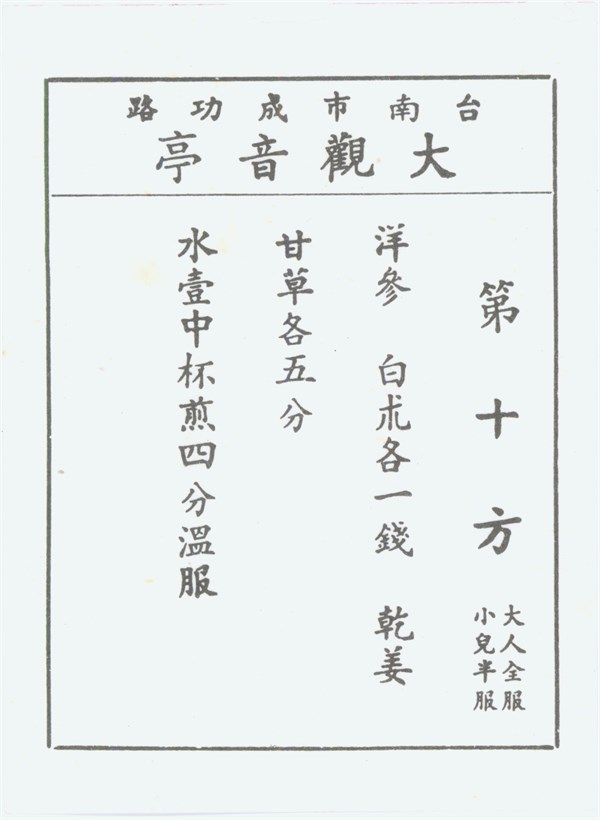 台南市成功路
大觀音亭
第十方
大人全服
小兒半服
洋參 白朮各一錢 乾姜
甘草各五分
水壹中杯煎四分溫服